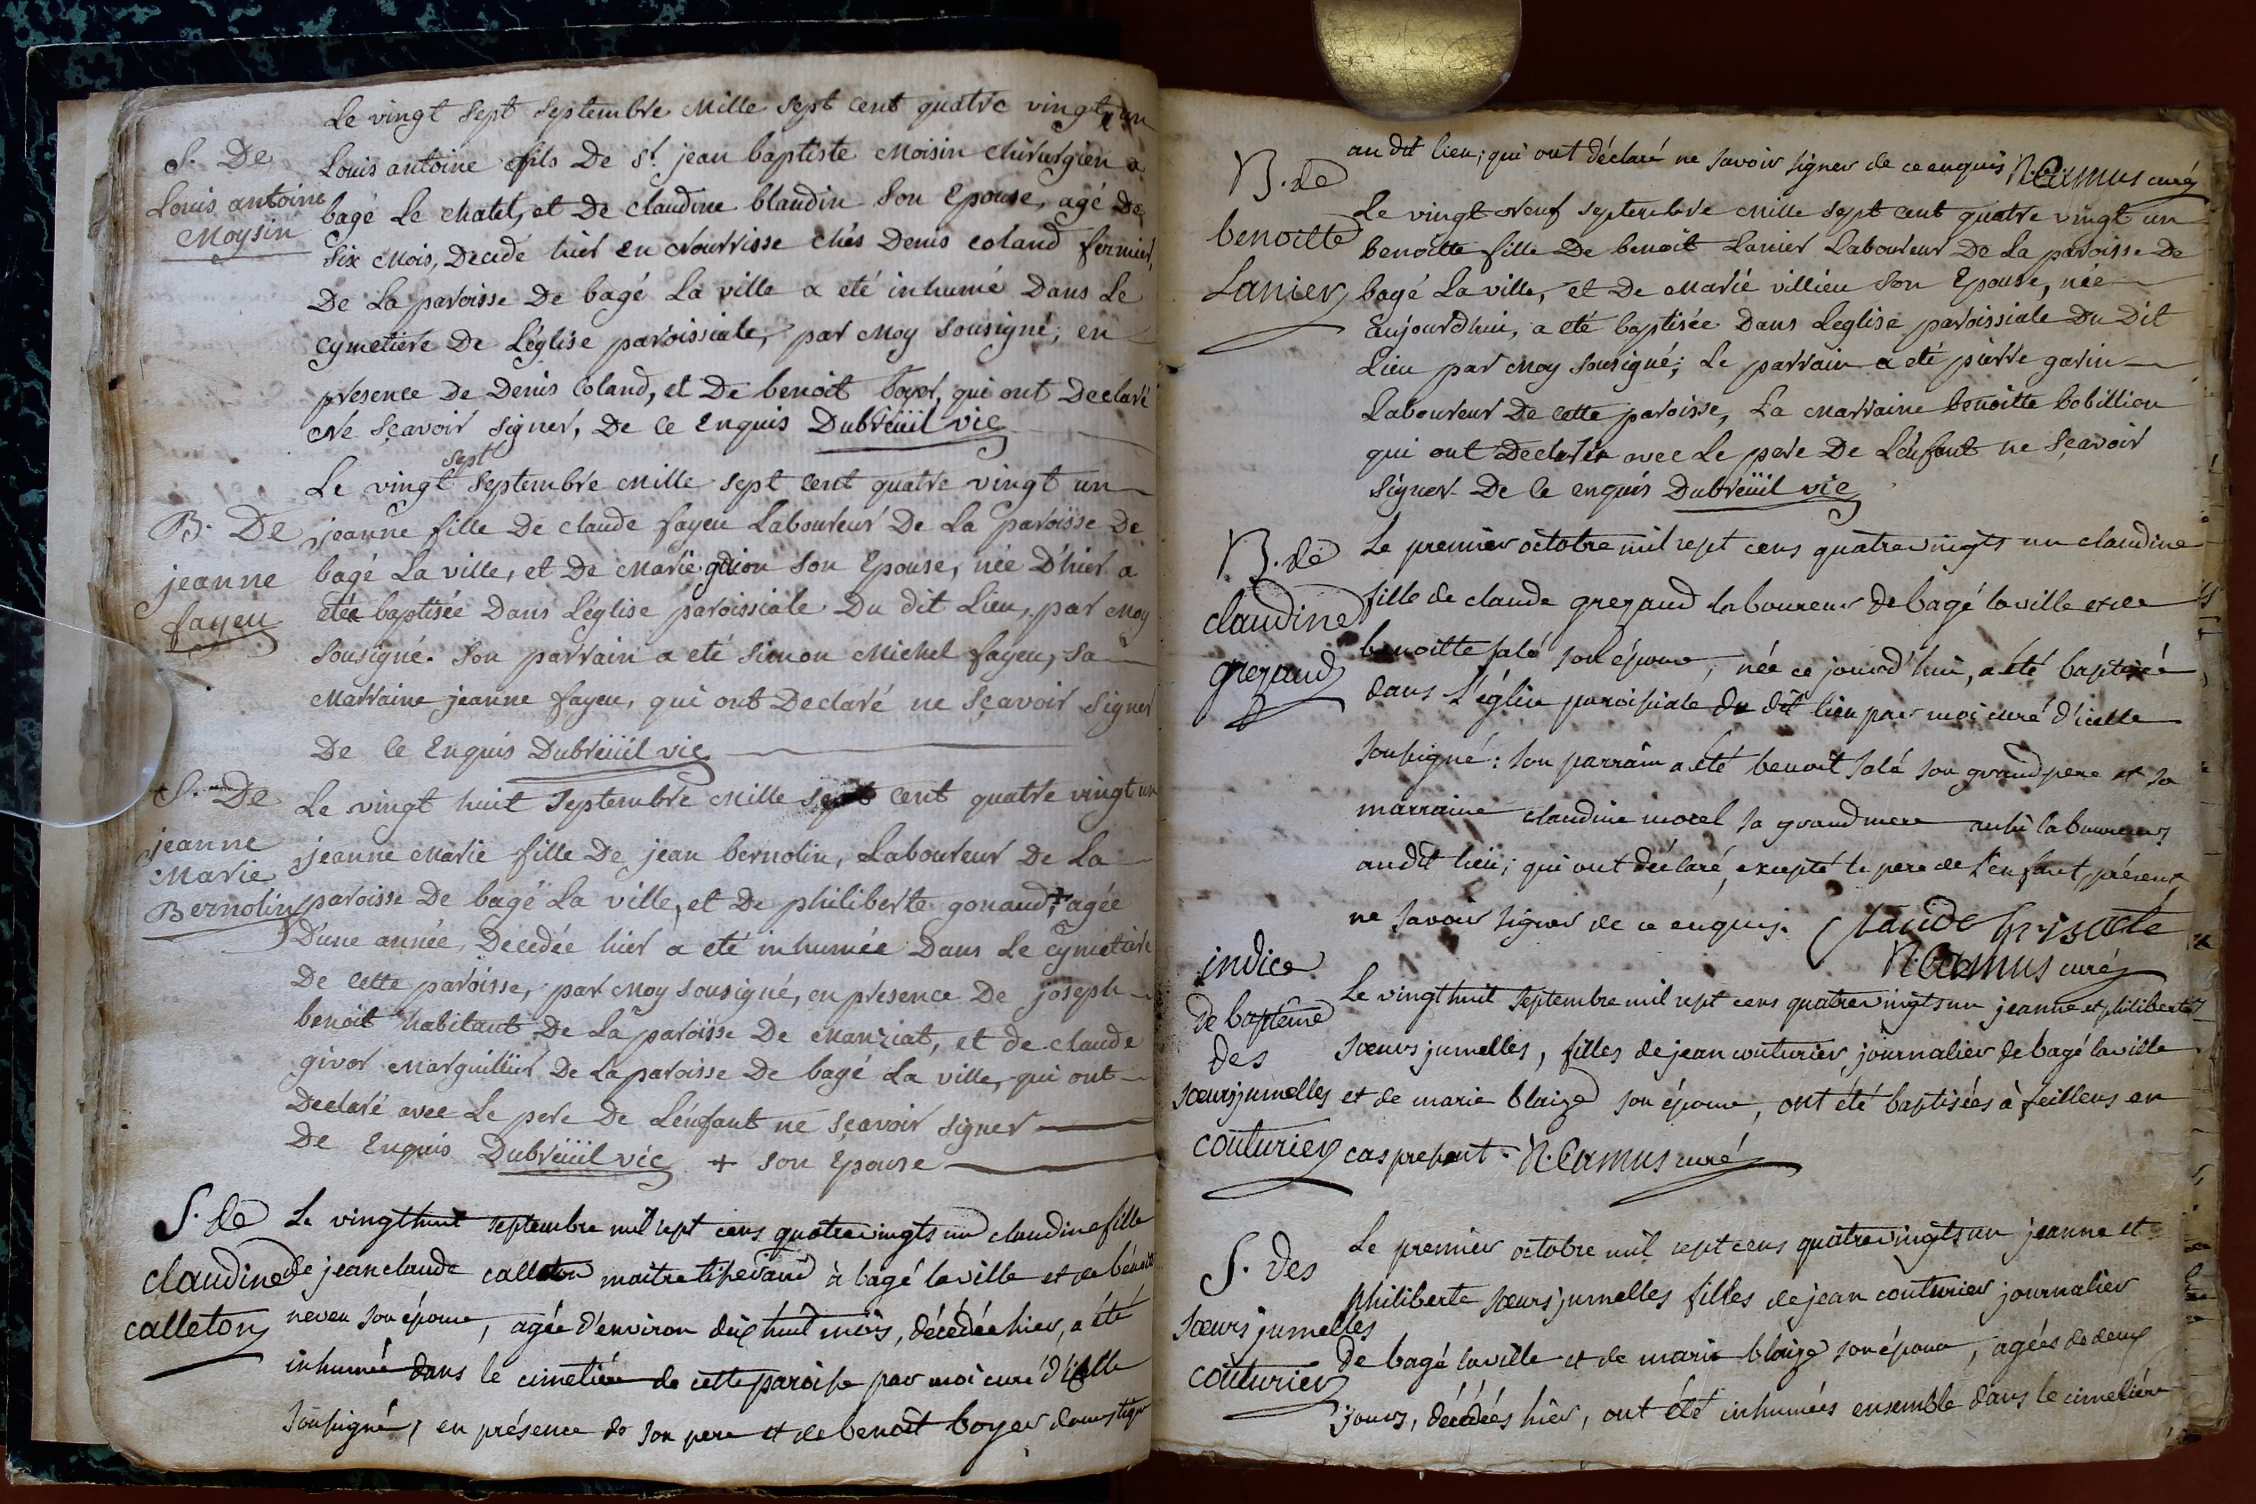 Le vingt sept septembre mille sept cent quatre vingt un
S. De
Louis antoine
Moysin
Louis antoine fils De Sr. jean baptiste Moisin chirurgien a
bagé Le chatel, et De claudine blandin Son Epouse, agé De
six Mois, Decedé hier en Nourrisse chés Denis coland fermier,
De La paroisse De bagé La ville a eté inhumé Dans Le
cymetiere De L'église paroissiale, par Moy sousigné, en
presence De Denis Coland, et De benoit boyer, qui ont Declaré
Ne sçavoir signer, De ce Enquis Dubreüil vic
sept
Le vingt septembre Mille sept cent quatre vingt un
B. De
jeanne
fayeu
jeanne fille De claude fayeu Laboureur De La paroisse De
bagé La ville, et De Marie guion Son Epouse, née D'hier a
etée baptisée Dans L'église paroissiale Du dit Lieu, par Moy
Sousigné. Son parrain a eté simon Michel fayeu, sa
Marraine jeanne fayeu, qui ont Declaré ne sçavoir signer
De ce Enquis Dubreüil vic
S. De
jeanne
Marie
Bernolin
Le vingt huit septembre Mille sept cent quatre vingt un
jeanne Marie fille De jean bernolin, Laboureur De La
paroisse De bagé La ville, et De philiberte gonaud, + agée
D'une année, Decedée hier a eté inhumée Dans Le cymetiere
De cette paroisse, par Moy sousigné, en presence De joseph
benoit habitant De La paroisse De Manziat, et de claude
givor Marguillier De La paroisse De bagé La ville, qui ont
Declaré avec Le pere De L'enfant ne sçavoir signer
De Enquis Dubreüil vic + son Epouse
S. de
claudine
calleton
Le vingt huit septembre mil sept cens quatrevingts un claudine fille
de jean claude calleton maitre tisserand à bagé la ville et de
neveu son épouse, agée d'environ dix huit mois, décédée hier, a été
inhumée dans le cimetiére de cette paroisse par moi curé d'icelle
soussigné, en présence de son pere et de benoit boyer domestique
au dit lieu; qui ont déclaré ne savoir signer de ce enquis N. Camus curé
B. de
benoitte
Lanier
Le vingt Neuf septembre Mille sept cent quatre vingt un
benoitte fille De benoit Lanier Laboureur De La paroisse De
bagé La ville, et De Marie villieu son Epouse, née
aujourd'hui, a eté baptisée Dans L'eglise paroissiale Du Dit
Lieu par Moy sousigné; Le parrain a eté pierre garin
Laboureur De cette paroisse, La Marraine benoitte bobillion
qui ont Declaré avec Le pere De L'enfant ne sçavoir
signer De ce enquis Dubreüil vic
B. de
claudine
grezaud
Le premier octobre mil sept cens quatrevingts un claudine
fille de claude grezaud laboureur de bagé la ville et de
benoitte salé son épouse, née ce jourd'hui, a été baptisée
dans l'église paroissiale du dit lieu par moi curé d'icelle
soussigné: son parrain a été benoit salé son grand pere et sa
marraine claudine morel sa grand mere aussi laboureurs
au dit lieu; qui ont déclaré, excepté le pere de l'enfant présent,
ne savoir signer de ce enquis. Claude
N. Camus curé
indice
de baptême
des
sœurs jumelles
couturier
Le vingt huit septembre mil sept cens quatrevingts un jeanne et philiberte
sœurs jumelles, filles de jean couturier journalier de bagé la ville
et de marie blaize son épouse, ont été baptisées à feillens en
cas pressant. N. Camus curé
S. des
sœurs jumelles
couturier
Le premier octobre mil sept cens quatrevingts un jeanne et
philiberte sœurs jumelles filles de jean couturier journalier
de bagé la ville et de marie blaize son épouse, agées de deux
jours, décédées hier, ont été inhumées ensemble dans le cimetiére